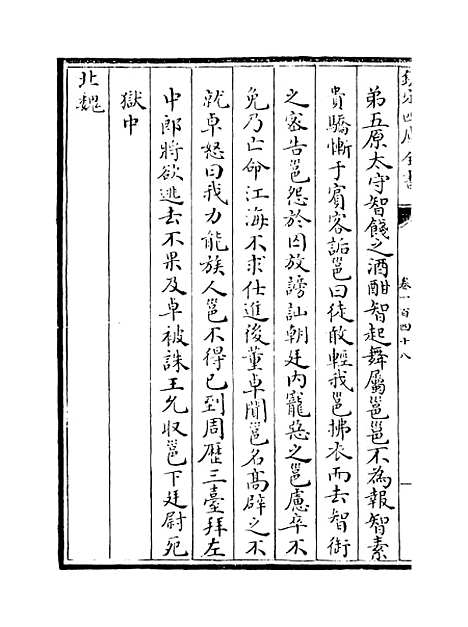 欽定四庫全書
卷一百四十八
弟五原太守智餞之酒酣智起舞屬邕邕不為報智素
貴驕慚于賓客詬邕曰徒敢輕我邕拂衣而去智銜
之密告邕怨於囚放謗訕朝廷內寵惡之邕慮卒不
免乃亡命江海不求仕進後董卓聞邕名髙辟之不
就卓怒曰我力能族人邕不得已到周歷三臺拜左
中郎將欲逃去不果及卓被誅王允収邕下廷尉死
獄中
北魏